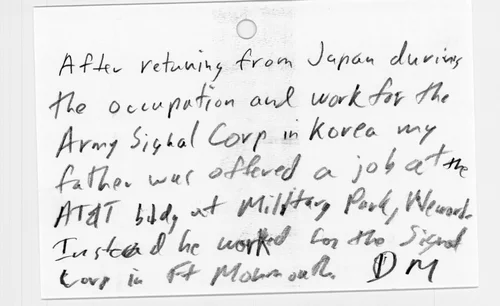 After retuning from Japan during
the occupation and work for the
Army Signal Corp in Korea my
father was offered a job at the
AT&T bldg at Military Park, Newark
Instead he worked for the Signal
Corp in Ft Monmouth. DM